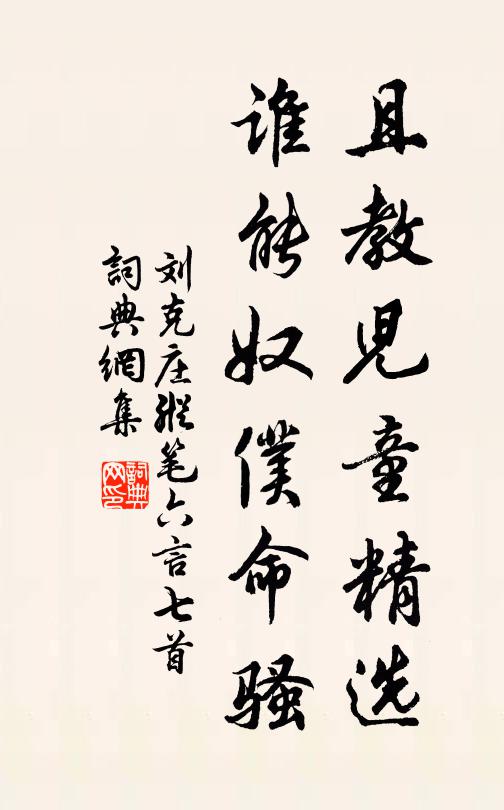 且教児童精选
谁能奴僕命骚
刘克庄縱笔六言七首
詞典網集
詞典網印